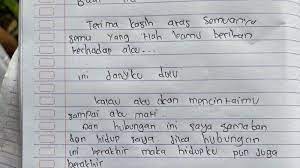 Terima kasih atas semuanya
yang kamu berikan
terhadap aku...
ini
kalau aku akan mencintaimu
sampai aku mati
Dan hubungan ini saya
dan hidup saya jika hubungan
ini berakhir maka hidupku pun Juga
berakhir